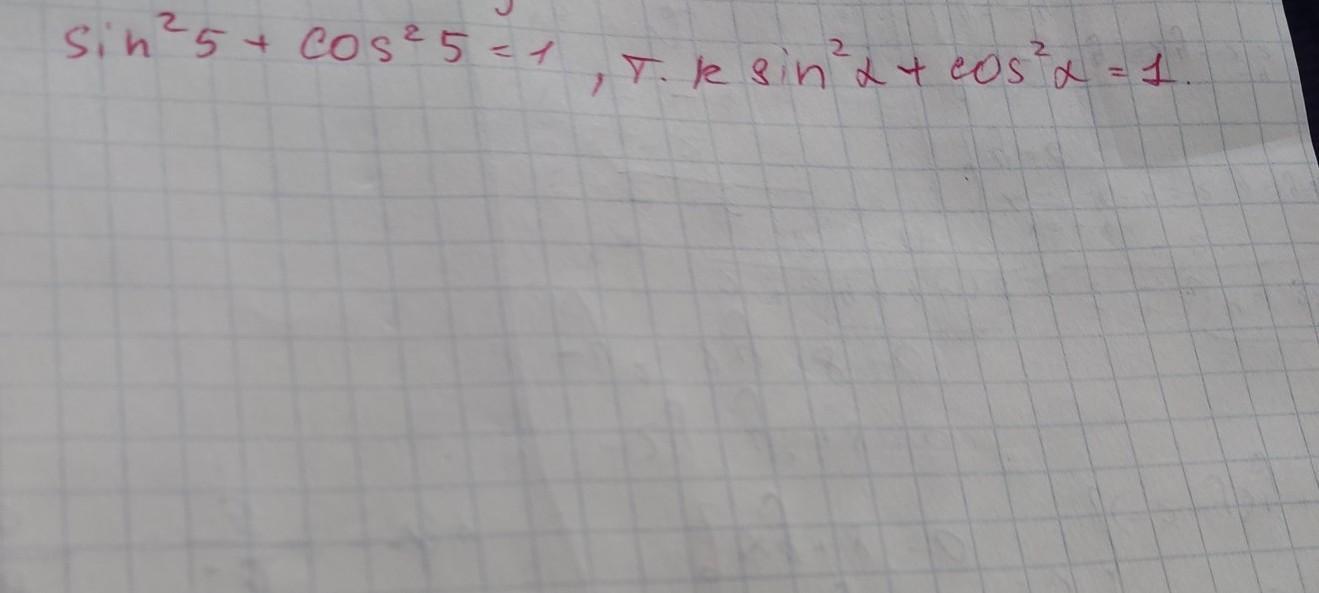 sin²5 + cos²5 = 1, т.к sin²α + cos²α = 1.